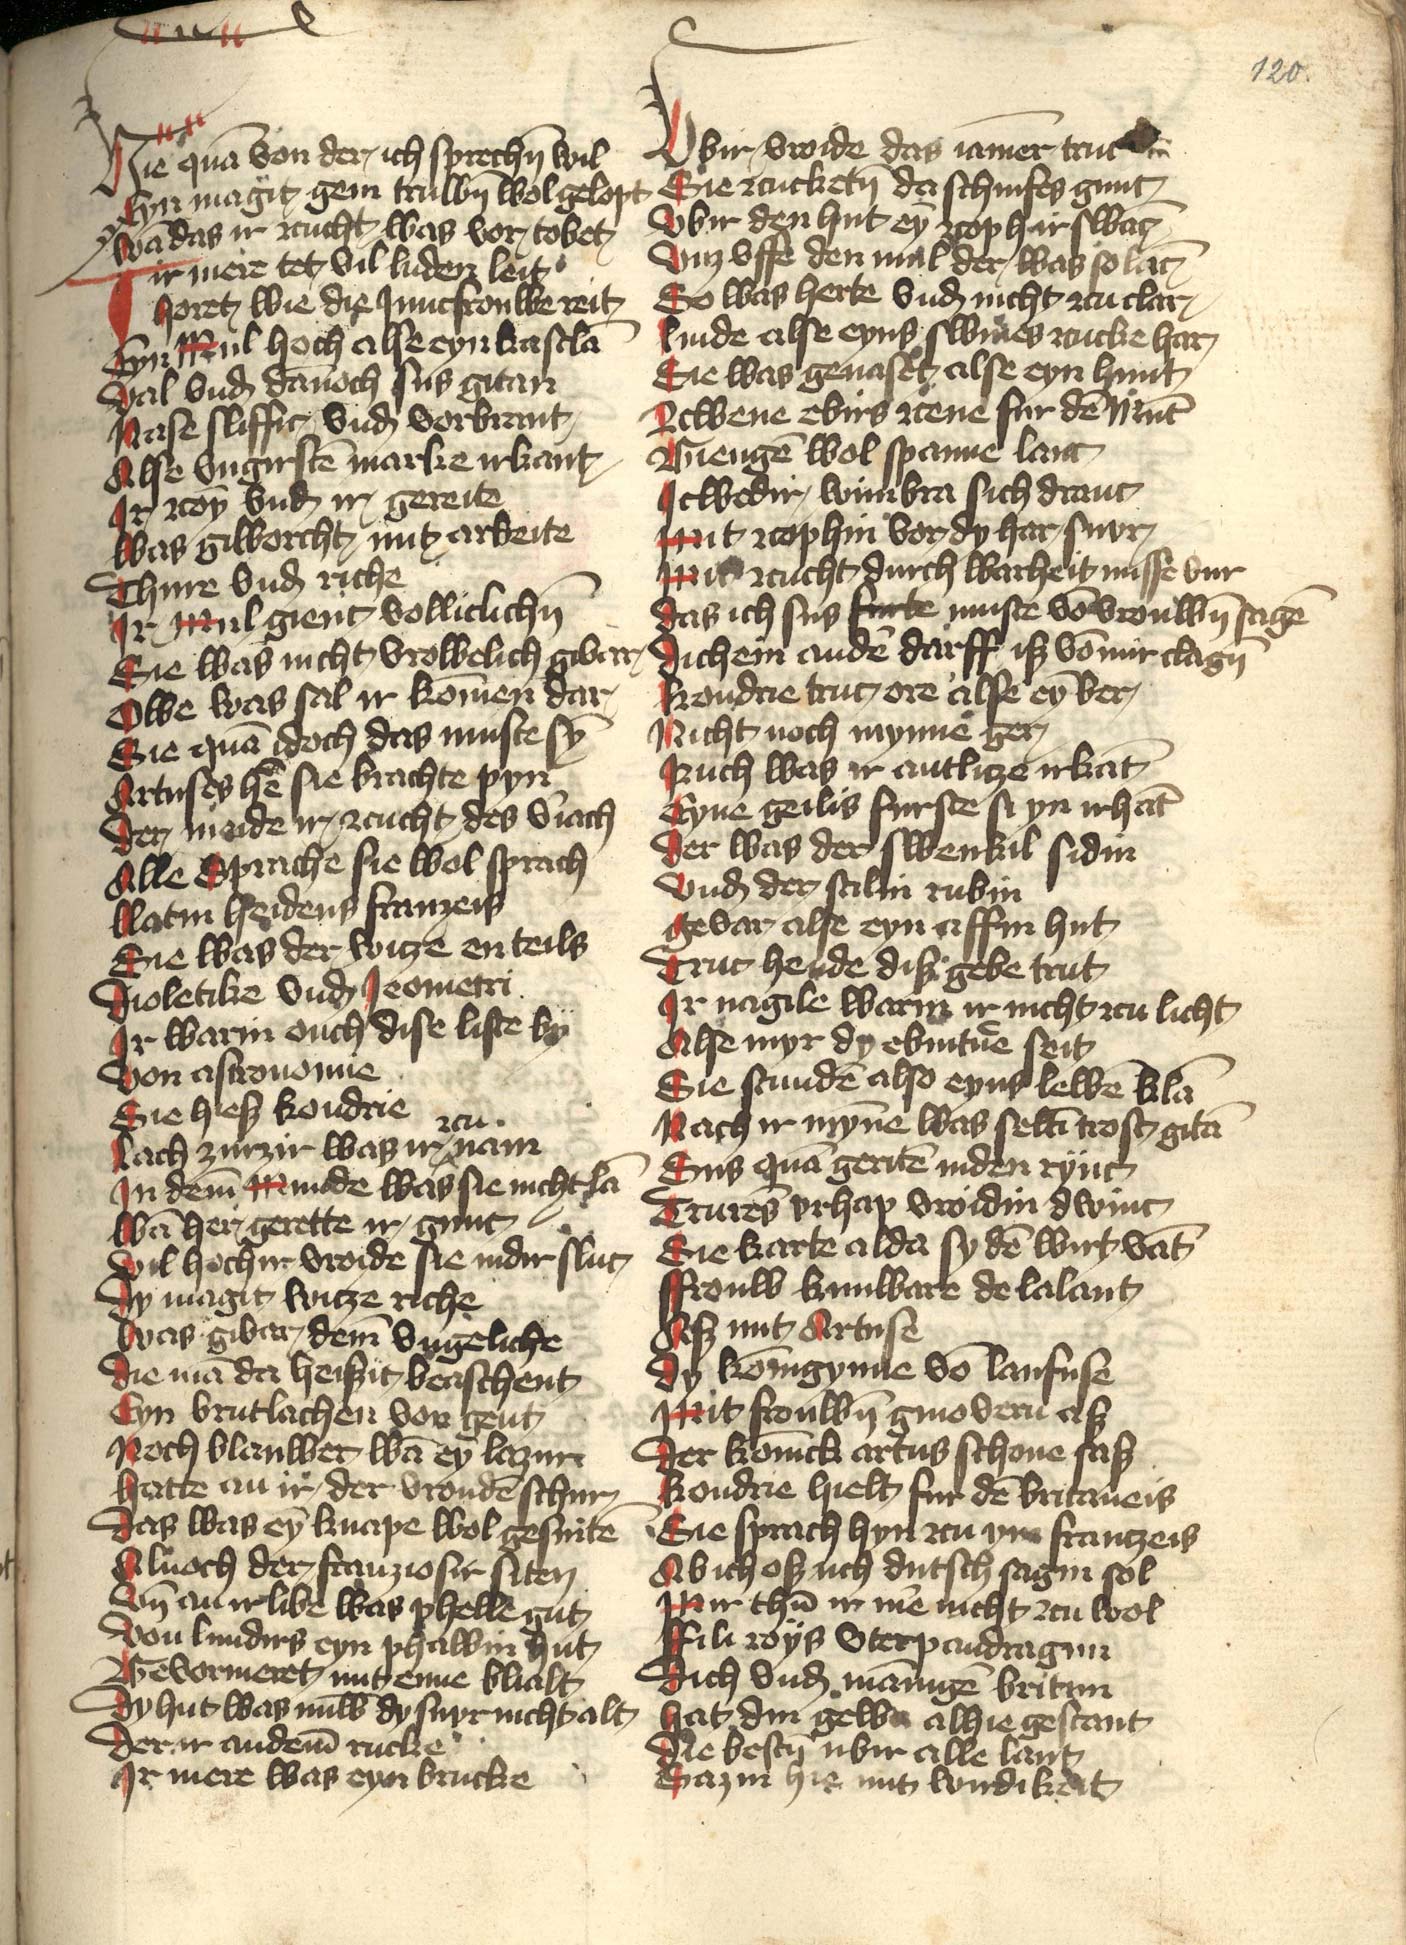 120.
Hie quā von der ich sprechn̄ wil
Eyn magit gein truwn̄ wol gelopt
wā das ir zcucht was vor tobet
Ir mere tet vil luden leit
horet wie die Juncfrouwe reit
Eyn Mul hoch alse eyn kastlā
val vnd dānoch sus gitan
Nase sliffic vnd vorbrant
Alse vngirschē marke irkant
Ir zcoȳ vnd ir gereite
was giworcht mit arbeite
Thure vnd riche
Ir Mul gient volliclichn̄
Sie was nicht vrowelich gibar
Owe was sal ir kōmen dar
Sie quā idoch das muste sȳ
Artuses hē sie brachte pyn
Der meide ir zcucht des v̄iach
Alle Sprache sie wol sprach
Latin heidens franzeis
Sie was der witze en teils
Dioletike vnd Jeometri
Ir warin ouch dise liste by
Von astronomie
Sie hiesz kondrie
zcu
lach zurzir was ir nam
In dem̄ Munde was sie nicht lā
wā her gerette ir gnuc
vil hochir vroide sie indir sluc
Dy magit witze riche
was gibar dem̄ vngeliche
Die mā da heiszit beaschent
Eyn brutlachen von gent
Noch blauwer wā eȳ lazur
hatte an ir der vroudē schur
Das was eȳ knape wol gesnitē
Alnoch der franziosir siten
Vn̄ an ir libe was phelle gut
Von lundirs eyn phawin hut
Gevorneret mit eime blialt
Dy hut was nuw dy snyr nicht alt
Der ir an dem̄ rucke
Ir mere was eyn brucke
Vbir vroide das iamer truc
Sie zcucketn̄ da schinfes gnuc
Vbir den hut eȳ zcoph ir swāc
Vnz vffe den mul der was so lāc
So was herte vnd nicht zcu clar
linde alse eyns swines rucke har
Sie was genaset alse eyn hunt
Zcwene ebirs zcene fur dē Mūt
Giengē wol spanne lanc
Jcwedir wimbra sich dranc
Mit zcophin vor dy har snyr
Mit zcucht durch warheit misse vur
das ich sus furte muste vō vrouwn̄ sagē
Dichein andē darff isz vō mir clagn̄
kondrie truc ore alse eȳ ber
Nicht noch mynne ger
Ruch was ir antlitze irkāt
Eyne geilis furste si yn irhāt
Der was der swenkil sidin
vnd der stilin rubin
gevar alse eyn affin hut
Truc hende disz gebe trut
Ir nagile warin ir nicht zcu licht
Alse myr dy ebintūe seit
Sie stundē also eyns lewē klā
Nach ir myn̄e was seltī trost gitā
Sus quā geritē in den rȳnc
Trurēs vrhap vroidin dwinc
Sie karte alda sy dē wirt vāt
ffrouw kunware de lalant
Asz mit Artuse
Dy kōnigynne vō lanfuse
Mit frouwn̄ ginovern asz
Der kōnick artus schone sasz
kondrie hielt fur dē britaneis
Sie sprach hyn zcu ym frantzeis
Ab ich osz uch dutsch sagin sol
Mir thū ir mē nicht zcu wol
ffili roys vterpandragun
Dich vnd mānigē britun
hat din gewā alhie gescant
Die bestn̄ vbir alle lant
Sazin hie mit wirdikeit